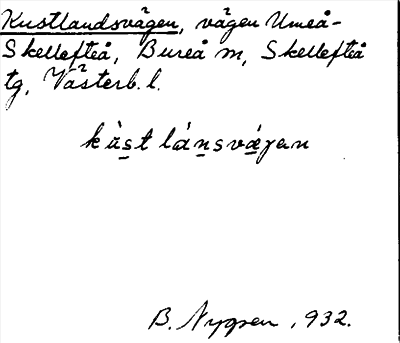 Kustlandsvägen, vägen Umeå-
Skellefteå, Bureå m, Skellefteå
tg, Västerb. l.
kàst lánsvǽgan
B. Nygren, 932.